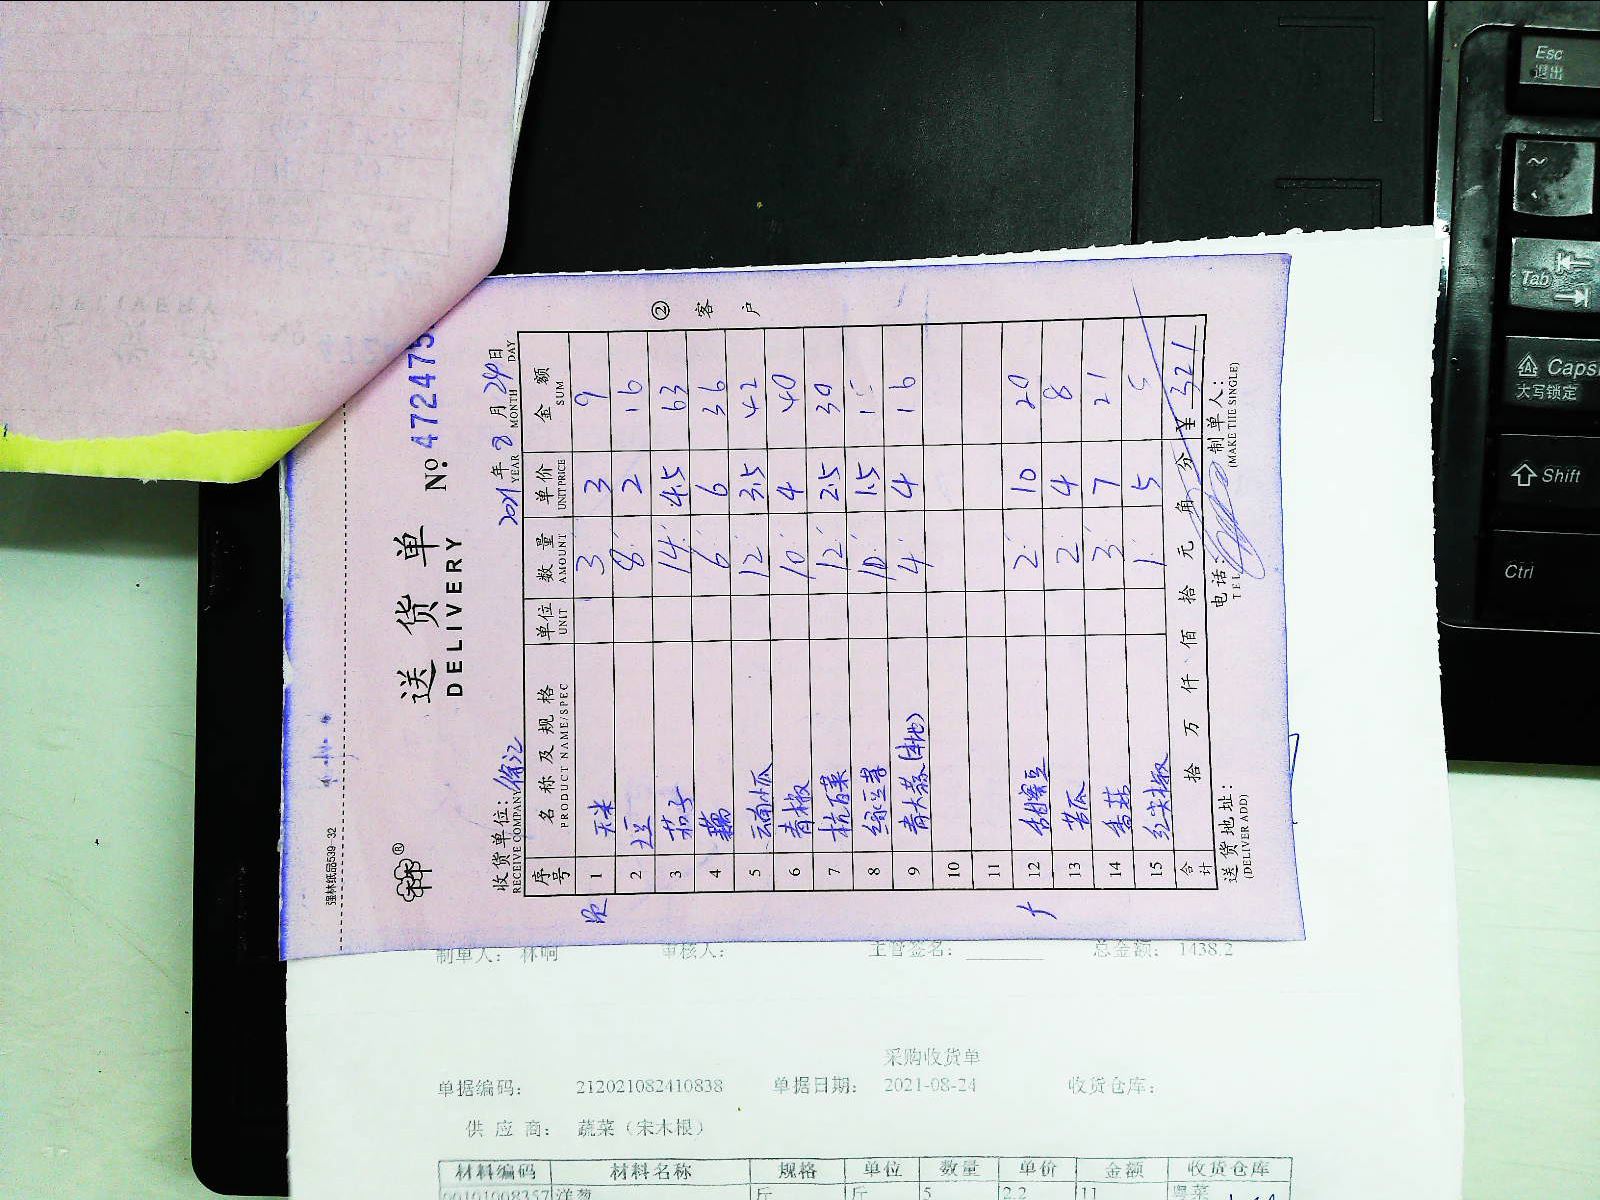 强林纸品539-32
®
送货单
DELIVERY
No. 472475
收货单位: 徐汇
RECEIVE COMPANY
2021年8月24日
YEAR MONTH DAY
② 客户
序号 名称及规格 单位 数量 单价 金额
PRODUCT NAME/SPEC UNIT AMOUNT UNIT PRICE SUM
1 玉米 3 3 9
2 土豆 8 2 16
3 茄子 14 4.5 63
4 藕 6 6 36
5 云南小瓜 12 3.5 42
6 青椒 10 4 40
7 杭白菜 12 2.5 30
8 绿豆芽 10 1.5 15
9 青大蒜(本地) 4 4 16
10
11
12 甜蜜豆 2 10 20
13 苦瓜 2 4 8
14 香菇 3 7 21
15 红尖椒 1 5 5
合计 拾 万 仟 佰 拾 元 角 分 ¥ 321
送货地址: 电话: 制单人:
(DELIVER ADD) TEL (MAKE THE SINGLE)
制单人: 林啊 审核人: 主管签名: 总金额: 1438.2
采购收货单
单据编码: 212021082410838 单据日期: 2021-08-24 收货仓库:
供应商: 蔬菜(宋木根)
材料编码 材料名称 规格 单位 数量 单价 金额 收货仓库
00101008357 洋葱 斤 斤 5 2.2 11 粤菜
Esc
退出
~
Tab
Caps
大写锁定
Shift
Ctrl